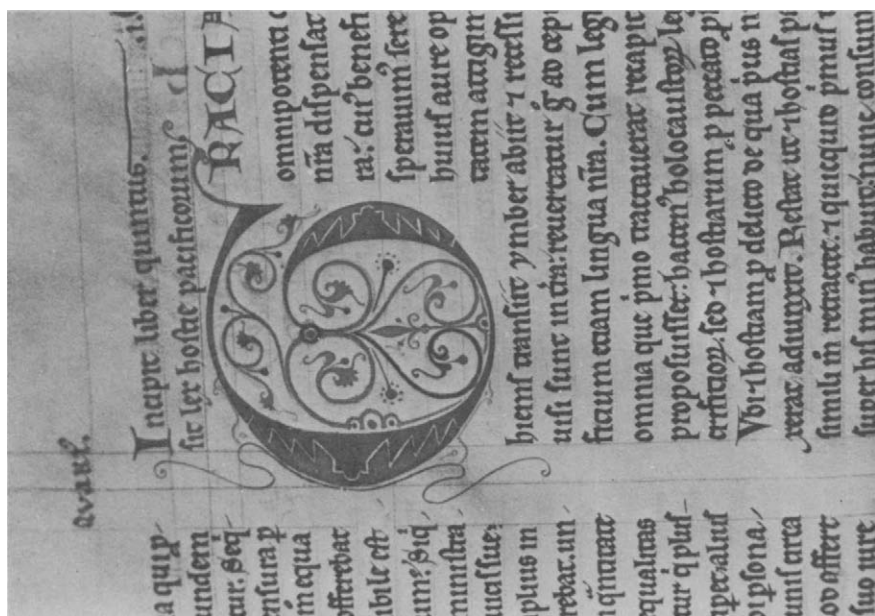 QVART'.
a quip-
undem
ensura p
in equa
offerebat
ibile est
ministra
plus in
rebat. un-
equalitas
psona
uni certa
affert
suo iure
Incipit liber quintus.
sit lex hostie pacificorum
GRACIA
omnipotenti
nr̃a dispensat
ra: cui' benefi
sperauim' fere
huius aure op
tatem attigim
hiems transiit ymber abiit ⁊ recessi
uisi sunt in tr̃a: reuertatur g̃ ad cep
ficium etiam lingua nr̃a. Cum legi
omnia que p̃mo tractauerat recapit
proposuisset: hacten' holocaustoꝝ leg
crificioꝝ. sed ⁊ hostiarum p peccato p
Vbi ⁊ hostiam p delicto de qua p̃us n
xerat adiunxit. Restat ut ⁊ hostias p
simili in retractet: ⁊ quicquid p̃mus
super his min' habuit: nunc consum